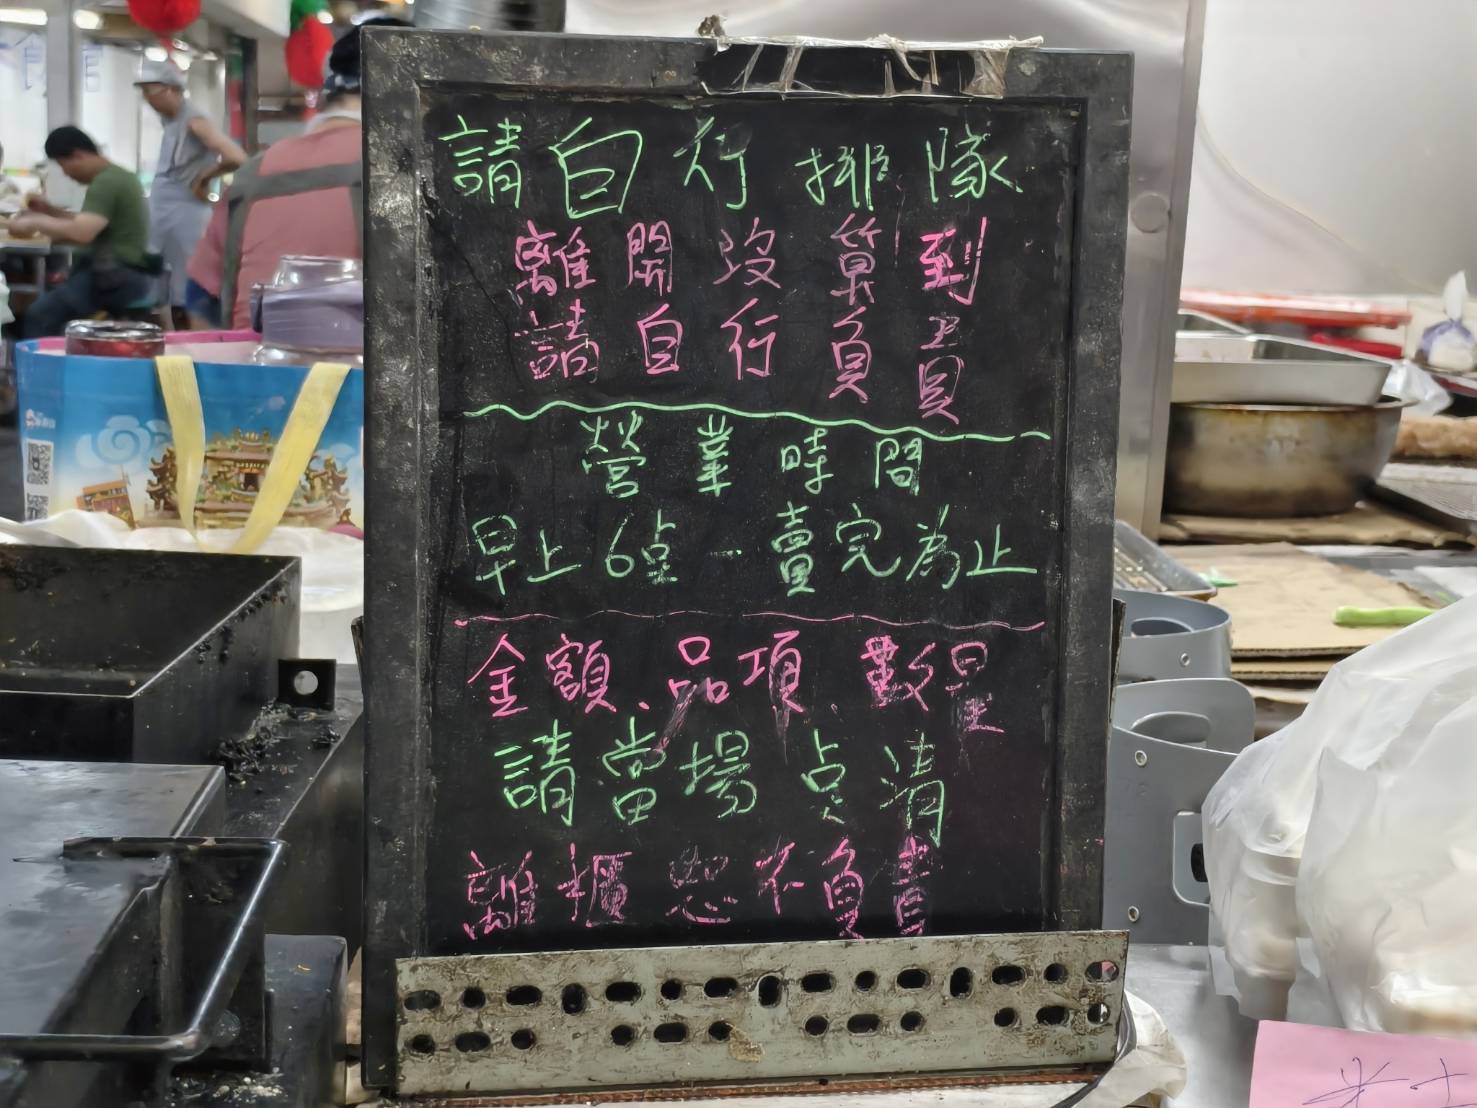 請自行排隊
離開沒算到
請自行負責
營業時間
早上6点--賣完為止
金額、品項、數量
請當場点清
離櫃恕不負責